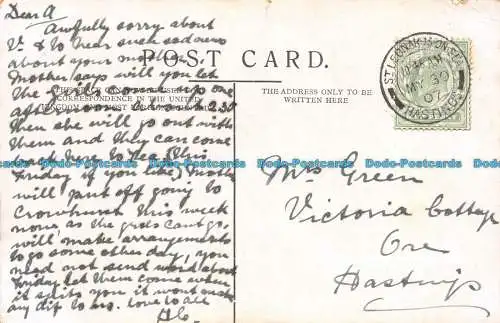 Dear A
Awfully sorry about
V. & to hear such sad news
about your mother.
Mother says will you let
the girls come up one
afternoon 2.30
then she will go out with
them and they can come
back here to tea (this
Friday if you like) Mother
will put off going to
Crowhurst this week
none as the girls cant go,
will make arrangements
to go some other day, you
need not send word about
Friday let them come when
it suits you it wont make
any dif to us. love to all
POST CARD.
CORRESPONDENCE IN THE UNITED
THE ADDRESS ONLY TO BE
WRITTEN HERE
ST LEONARDS-ON-SEA
MY 30
07
HASTINGS
Mrs Green
Victoria Cottage
Ore
Hastings
Dodo-Postcards Dodo-Postcards Dodo-Postcards Dodo-Postcards Dodo-Postcards